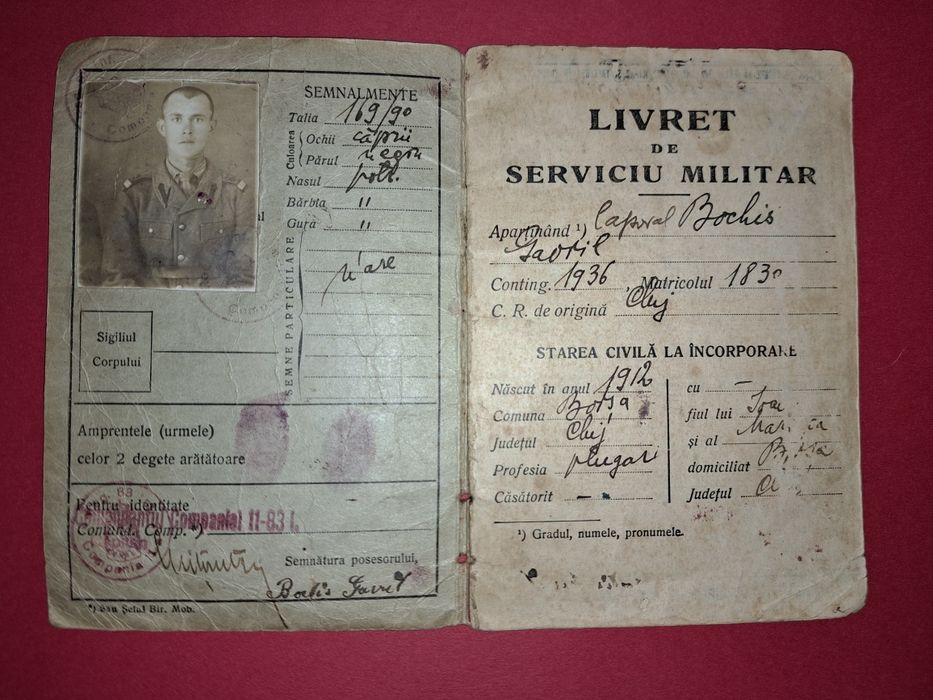 SEMNALMENTE
Talia 169/90
Culoarea
Ochii căprii
Părul negru
Nasul potr.
Bărbia "
Gura "
SEMNE PARTICULARE
n'are
Sigiliul
Corpului
Amprentele (urmele)
celor 2 degete arătătoare
Pentru identitate
Comandantul Companiei 11-83 I.
Comand. Comp. *)
Semnătura posesorului,
Bochis Gavril
*) sau Șeful Bir. Mob.
LIVRET
DE
SERVICIU MILITAR
Aparținând ¹) Caporal Bochis
Gavril
Conting. 1936, Matricolul 1830
C. R. de origină Cluj
STAREA CIVILĂ LA ÎNCORPORARE
Născut în anul 1912
Comuna Borșa
Județul Cluj
Profesia plugar
Căsătorit —
cu —
fiul lui
și al
domiciliat
Județul
¹) Gradul, numele, pronumele.